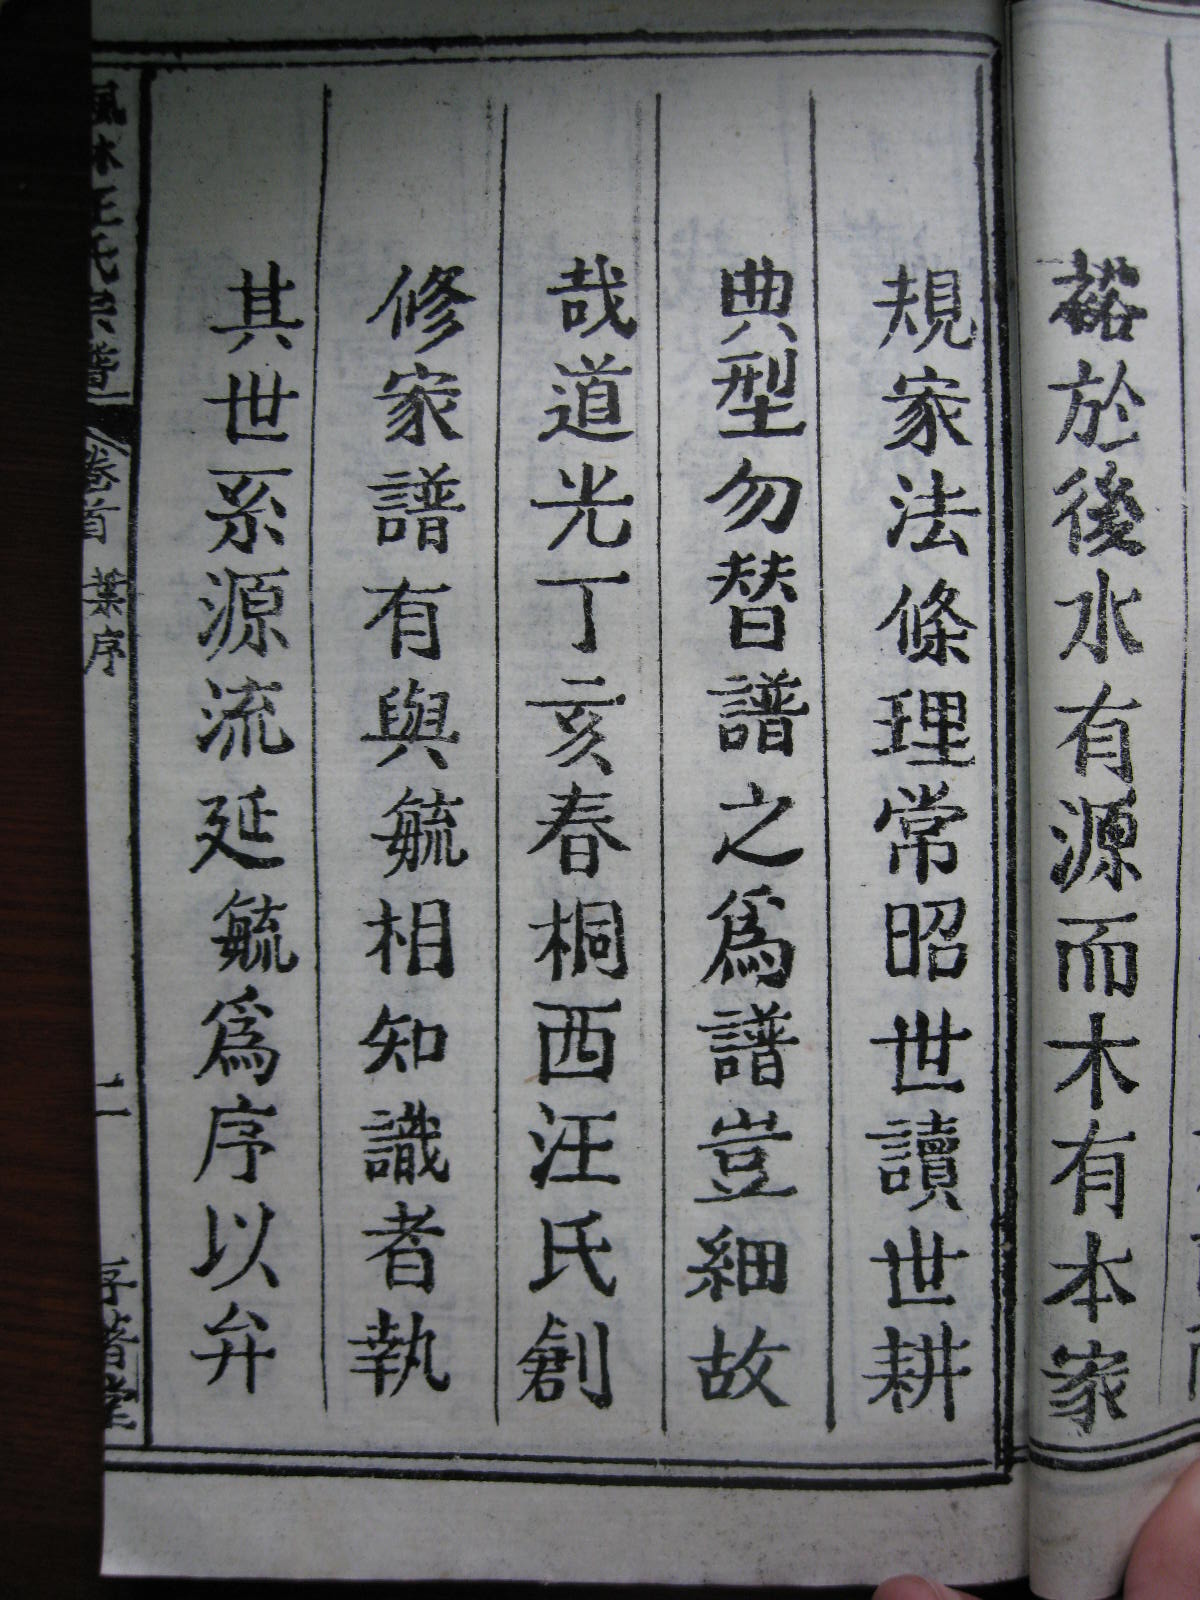 裕於後水有源而木有本家
規家法條理常昭世讀世耕
典型勿替譜之為譜豈細故
哉道光丁亥春桐西汪氏創
修家譜有與毓相知識者執
其世系源流延毓為序以弁
林王氏宗譜 卷首 葉序 二